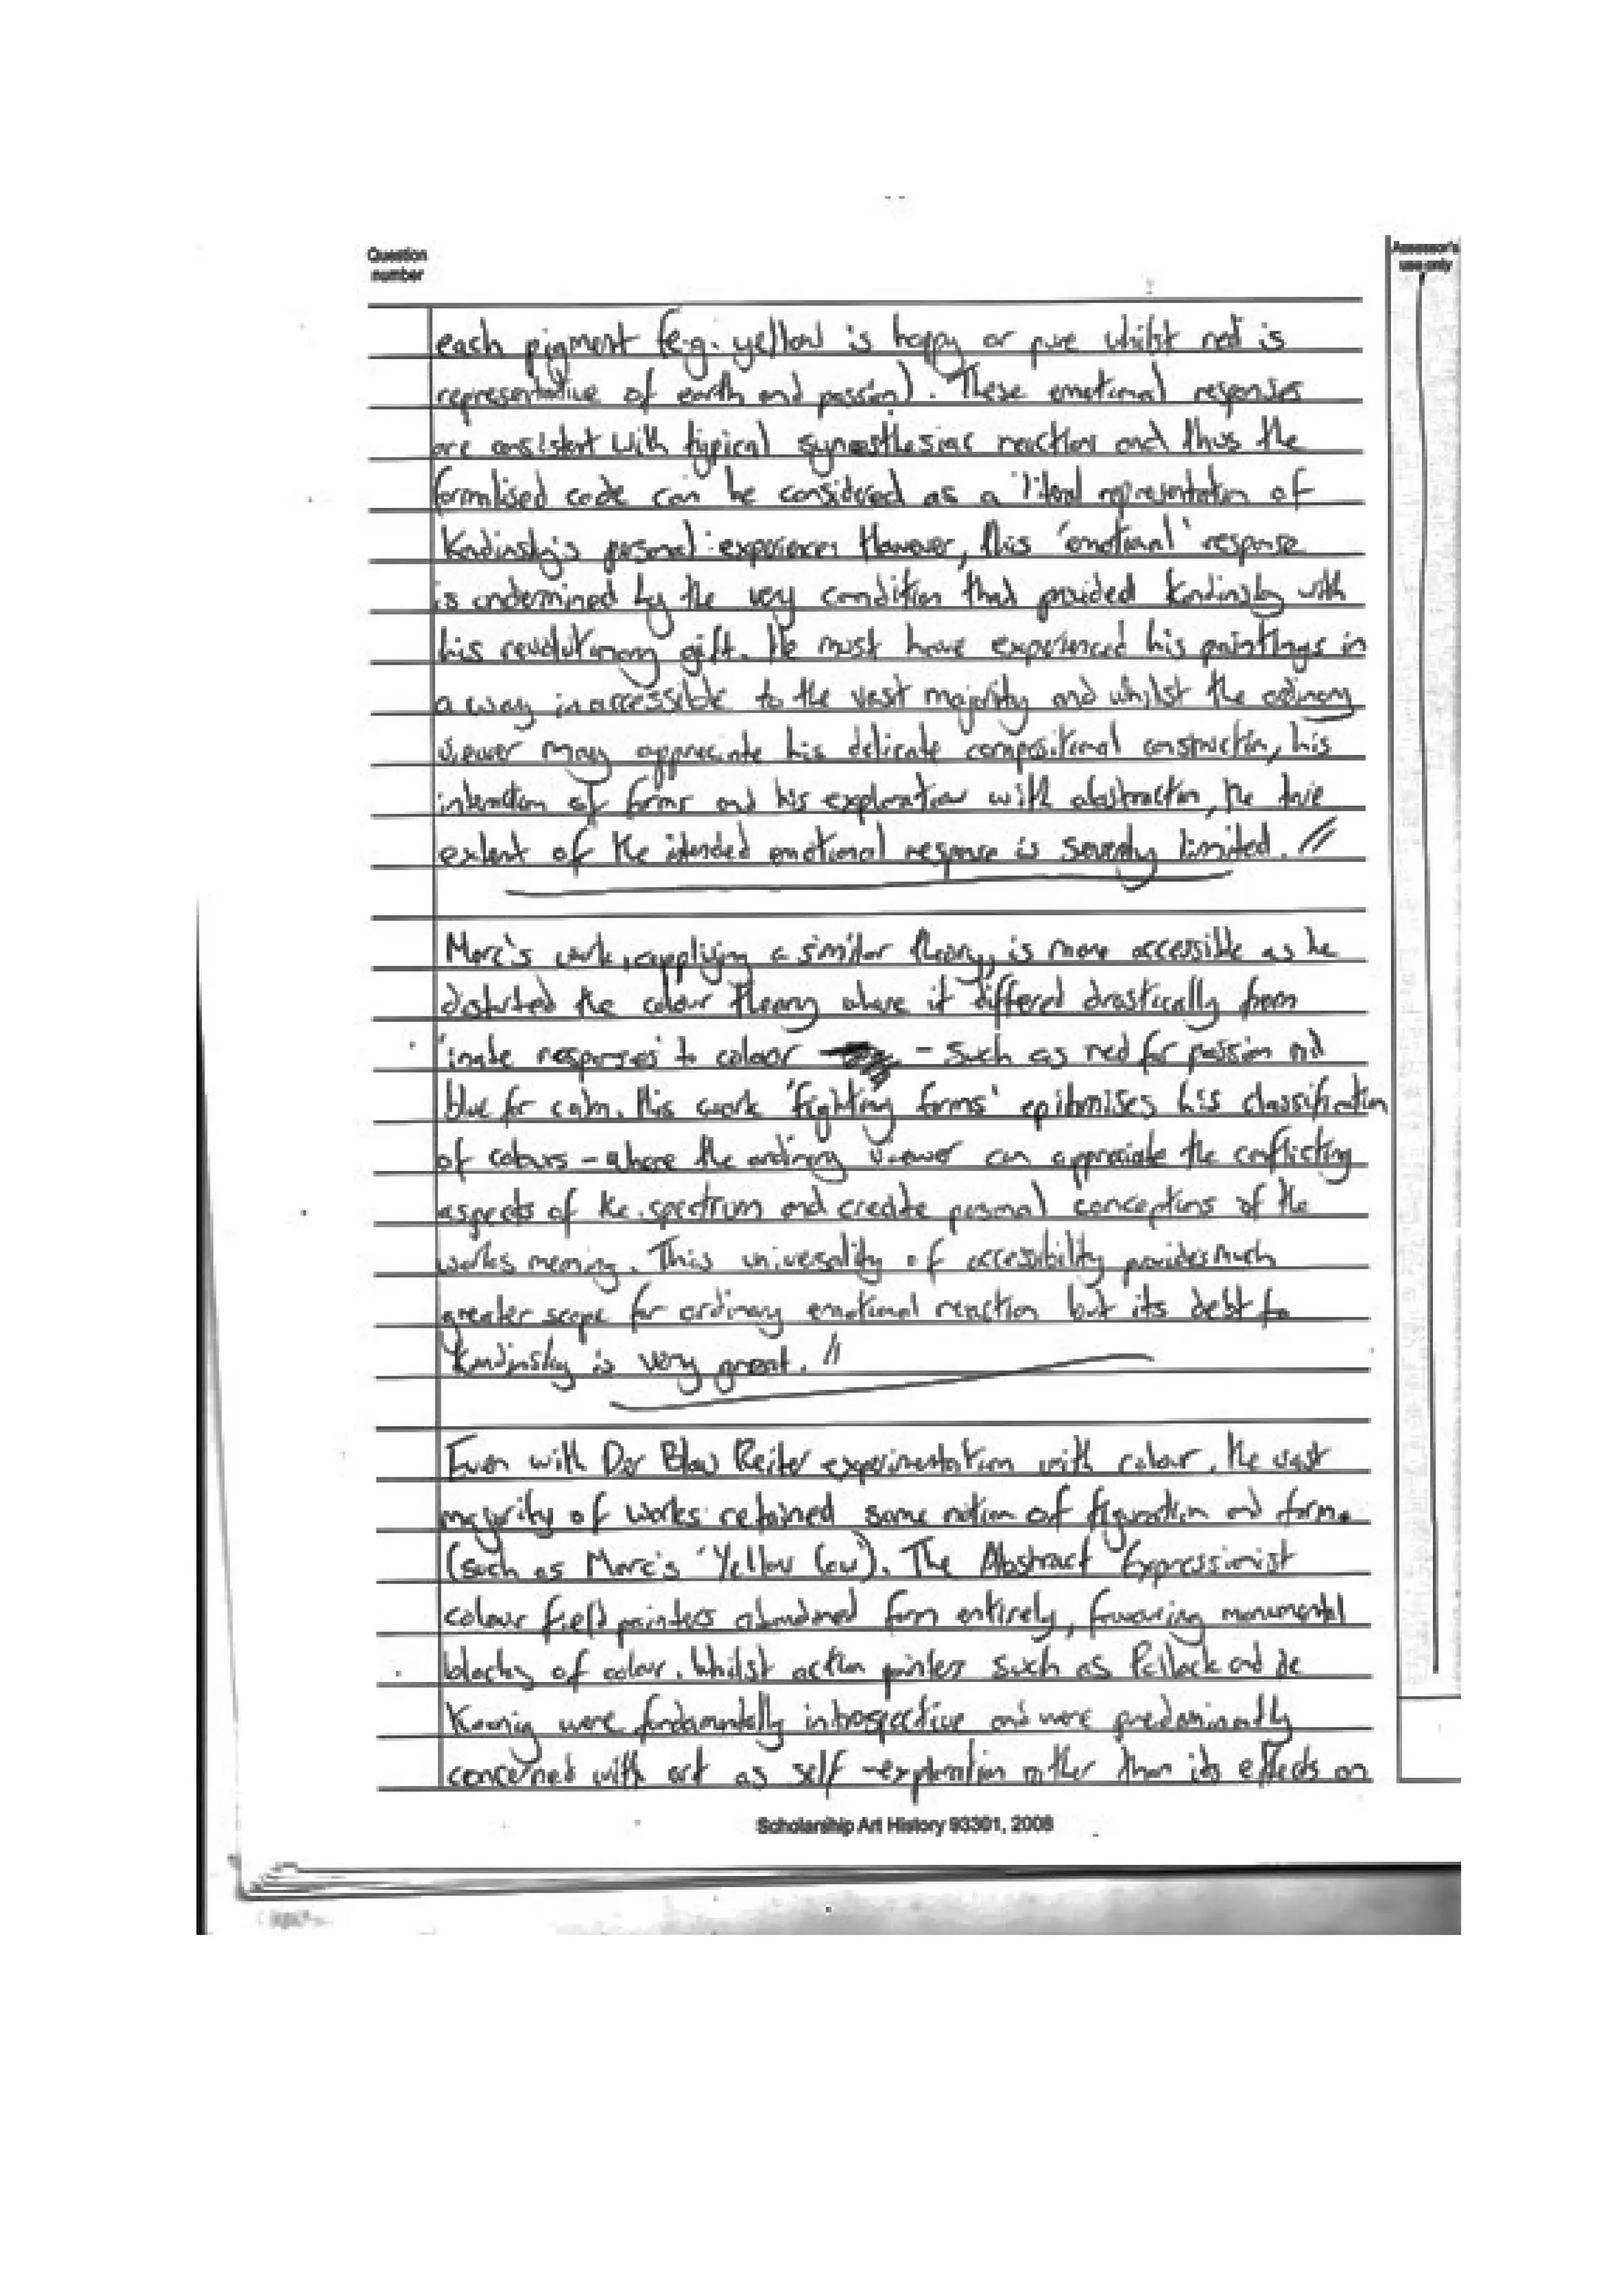 Question
number
Assessor's
use only
each pigment (e.g. yellow is happy or pure whilst red is
representative of earth and passion). These emotional responses
are consistent with typical synaesthesiac reactions and thus the
formalised code can be considered as a literal representation of
Kandinsky's personal experiences. However, this 'emotional' response
is undermined by the very condition that provided Kandinsky with
his revolutionary gift. He must have experienced his paintings in
a way inaccessible to the vast majority and whilst the ordinary
viewer may appreciate his delicate compositional construction, his
interaction of forms and his exploration with abstraction, the true
extent of the intended emotional response is severly limited. //
Marc's work, applying a similar theory, is more accessible as he
distorted the colour theory where it differed drastically from
'inate responses' to colour - such as red for passion and
blue for calm. His work 'fighting forms' epitomises his classification
of colours - where the ordinary viewer can appreciate the conflicting
aspects of the spectrum and create personal conceptions of the
works meaning. This universality of accessibility provides much
greater scope for ordinary emotional reaction but its debt to
Kandinsky is very great. //
Even with Der Blau Reiter experimentation with colour, the vast
majority of works retained some notion of figuration and form.
(such as Marc's 'Yellow Cow). The Abstract Expressionist
colour field painters abandoned form entirely, favouring monumental
blocks of colour. Whilst action painters such as Pollock and de
Koonig were fundamentally introspective and were predominantly
concerned with art as self-exploration rather than its effects on
Scholarship Art History 93301, 2008